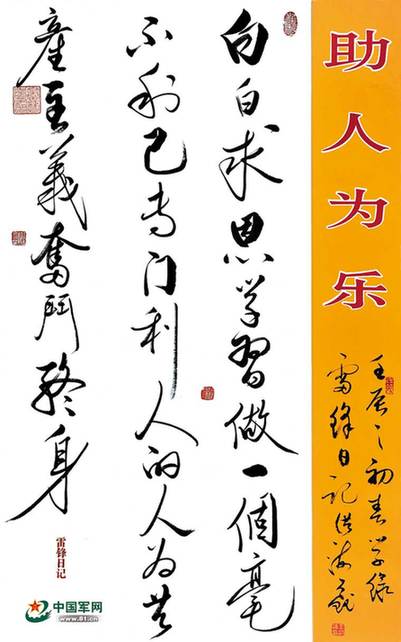 助人为乐
壬辰之初春学録
雷锋日记
向白求恩学習做一個毫
不利己专门利人的人为共
産主義奮鬥終身
雷锋日记
中国军网
www.81.cn